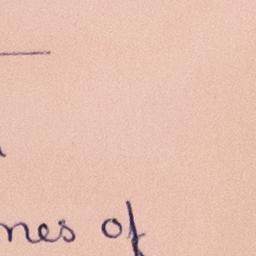 nes of